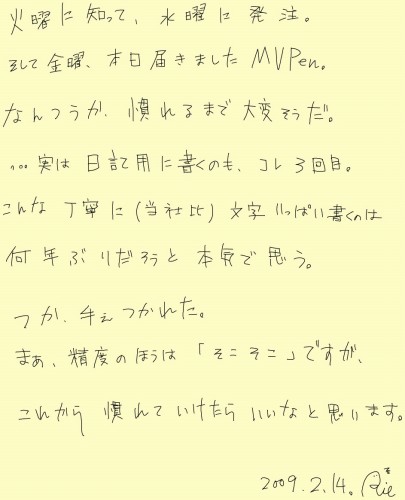 火曜に知って、水曜に発注。
そして金曜、本日届きましたMVPen。
なんつうか、慣れるまで大変そうだ。
…実は日記用に書くのも、コレ3回目。
こんな丁寧に(当社比)文字いっぱい書くのは
何年ぶりだろうと本気で思う。
つか、手ぇつかれた。
まぁ、精度のほうは「そこそこ」ですが、
これから慣れていけたらいいなと思います。
2009.2.14. Rie